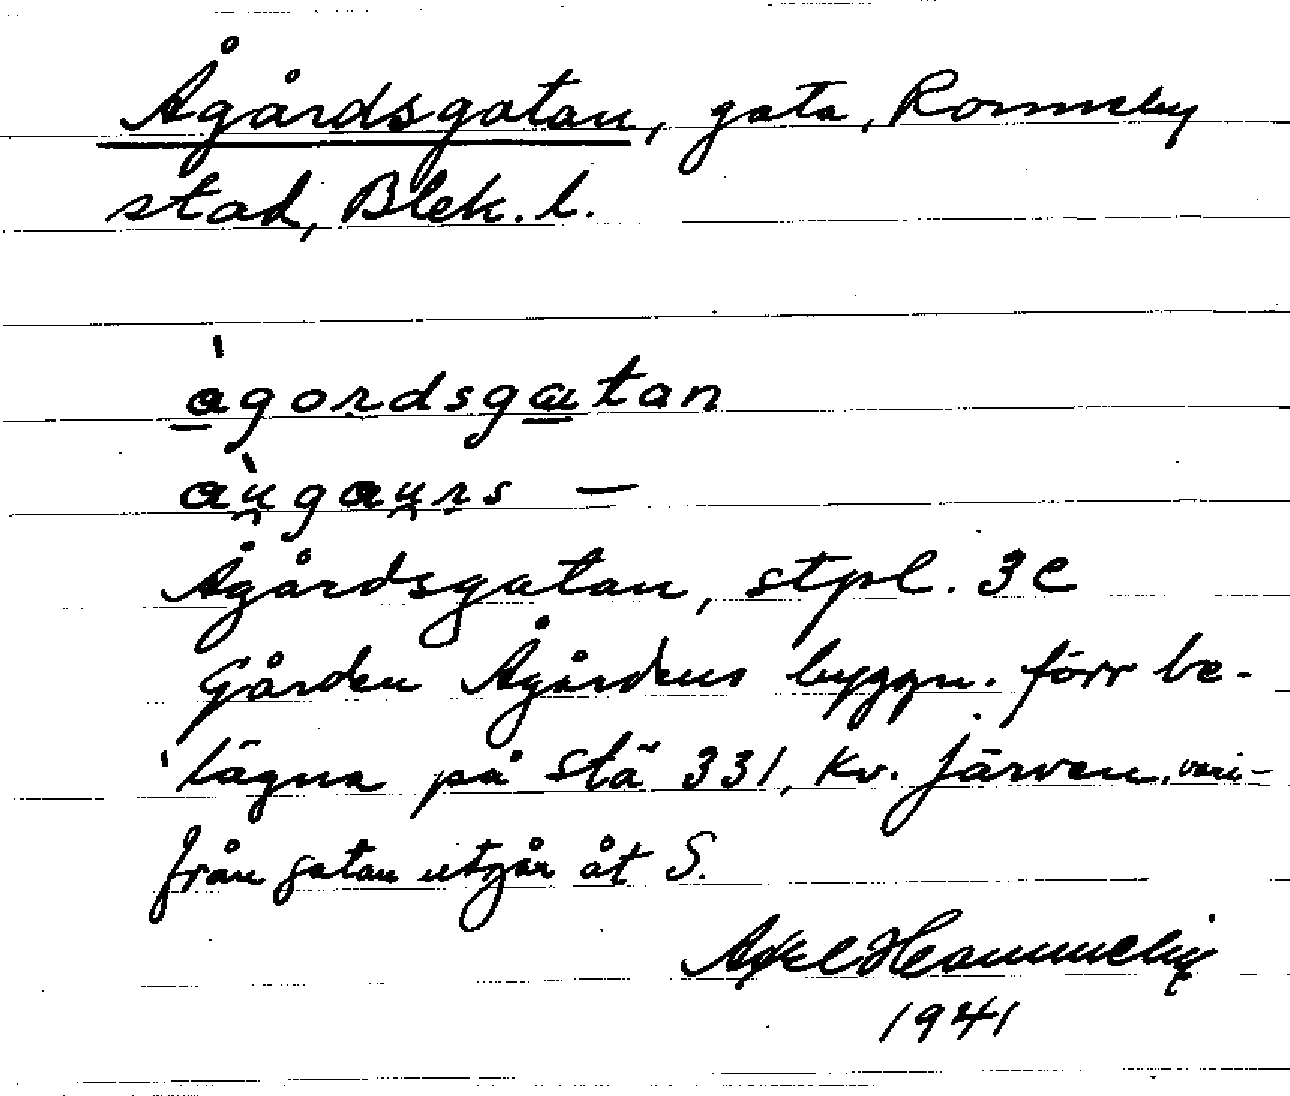 Ågårdsgatan, gata, Ronneby
stad, Blek. l.
ågordsgætan
aùgaurs —
Ågårdsgatan, stpl. 3 C
Gården Ågårdens byggn. förr be-
lägna på stä 331, Kv. Järven, vari-
från gatan utgår åt S.
Axel
1941